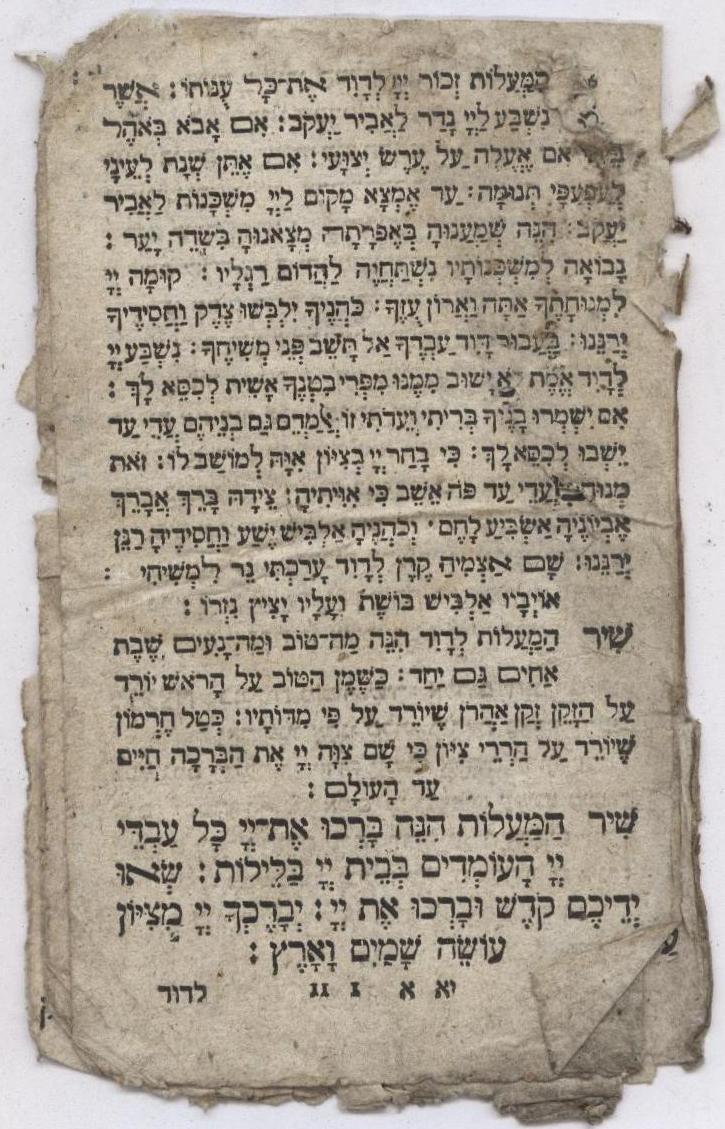 הַמַּעֲלוֹת זְכוֹר יְיָ לְדָוִד אֶת־כָּל עֻנּוֹתוֹ: אֲשֶׁר
נִשְׁבַּע לַיְיָ נָדַר לַאֲבִיר יַעֲקֹב: אִם אָבֹא בְּאֹהֶל
אִם אֶעֱלֶה עַל עֶרֶשׂ יְצוּעָי: אִם אֶתֵּן שְׁנַת לְעֵינָי
לְעַפְעַפַּי תְּנוּמָה: עַד אֶמְצָא מָקוֹם לַיְיָ מִשְׁכָּנוֹת לַאֲבִיר
יַעֲקֹב: הִנֵּה שְׁמַעֲנוּהָ בְּאֶפְרָתָה מְצָאנוּהָ בִּשְׂדֵה יָעַר:
נָבוֹאָה לְמִשְׁכְּנוֹתָיו נִשְׁתַּחֲוֶה לַהֲדוֹם רַגְלָיו: קוּמָה יְיָ
לִמְנוּחָתֶךָ אַתָּה וַאֲרוֹן עֻזֶּךָ: כֹּהֲנֶיךָ יִלְבְּשׁוּ צֶדֶק וַחֲסִידֶיךָ
יְרַנֵּנוּ: בַּעֲבוּר דָּוִד עַבְדֶּךָ אַל תָּשֵׁב פְּנֵי מְשִׁיחֶךָ: נִשְׁבַּע יְיָ
לְדָוִד אֱמֶת יָשׁוּב מִמֶּנּוּ מִפְּרִי בִטְנְךָ אָשִׁית לְכִסֵּא לָךְ:
אִם יִשְׁמְרוּ בָנֶיךָ בְּרִיתִי וְעֵדֹתִי זוֹ אֲלַמְּדֵם גַּם בְּנֵיהֶם עֲדֵי עַד
יֵשְׁבוּ לְכִסֵּא לָךְ: כִּי בָחַר יְיָ בְּצִיּוֹן אִוָּהּ לְמוֹשַׁב לוֹ: זֹאת
עֲדֵי עַד פֹּה אֵשֵׁב כִּי אִוִּיתִיהָ: צֵידָהּ בָּרֵךְ אֲבָרֵךְ
אֶבְיוֹנֶיהָ אַשְׂבִּיעַ לָחֶם: וְכֹהֲנֶיהָ אַלְבִּישׁ יֶשַׁע וַחֲסִידֶיהָ רַנֵּן
יְרַנֵּנוּ: שָׁם אַצְמִיחַ קֶרֶן לְדָוִד עָרַכְתִּי נֵר לִמְשִׁיחִי:
אוֹיְבָיו אַלְבִּישׁ בּוֹשֶׁת וְעָלָיו יָצִיץ נִזְרוֹ:
שִׁיר הַמַּעֲלוֹת לְדָוִד הִנֵּה מַה־טּוֹב וּמַה־נָּעִים שֶׁבֶת
אַחִים גַּם יַחַד: כַּשֶּׁמֶן הַטּוֹב עַל הָרֹאשׁ יוֹרֵד
עַל הַזָּקָן זְקַן אַהֲרֹן שֶׁיּוֹרֵד עַל פִּי מִדּוֹתָיו: כְּטַל חֶרְמוֹן
שֶׁיּוֹרֵד עַל הַרְרֵי צִיּוֹן כִּי שָׁם צִוָּה יְיָ אֶת הַבְּרָכָה חַיִּים
עַד הָעוֹלָם:
שִׁיר הַמַּעֲלוֹת הִנֵּה בָּרְכוּ אֶת־יְיָ כָּל עַבְדֵי
יְיָ הָעוֹמְדִים בְּבֵית יְיָ בַּלֵּילוֹת: שְׂאוּ
יְדֵיכֶם קֹדֶשׁ וּבָרְכוּ אֶת יְיָ: יְבָרֶכְךָ יְיָ מִצִּיּוֹן
עוֹשֵׂה שָׁמַיִם וָאָרֶץ:
יא א 1 11 לדוד